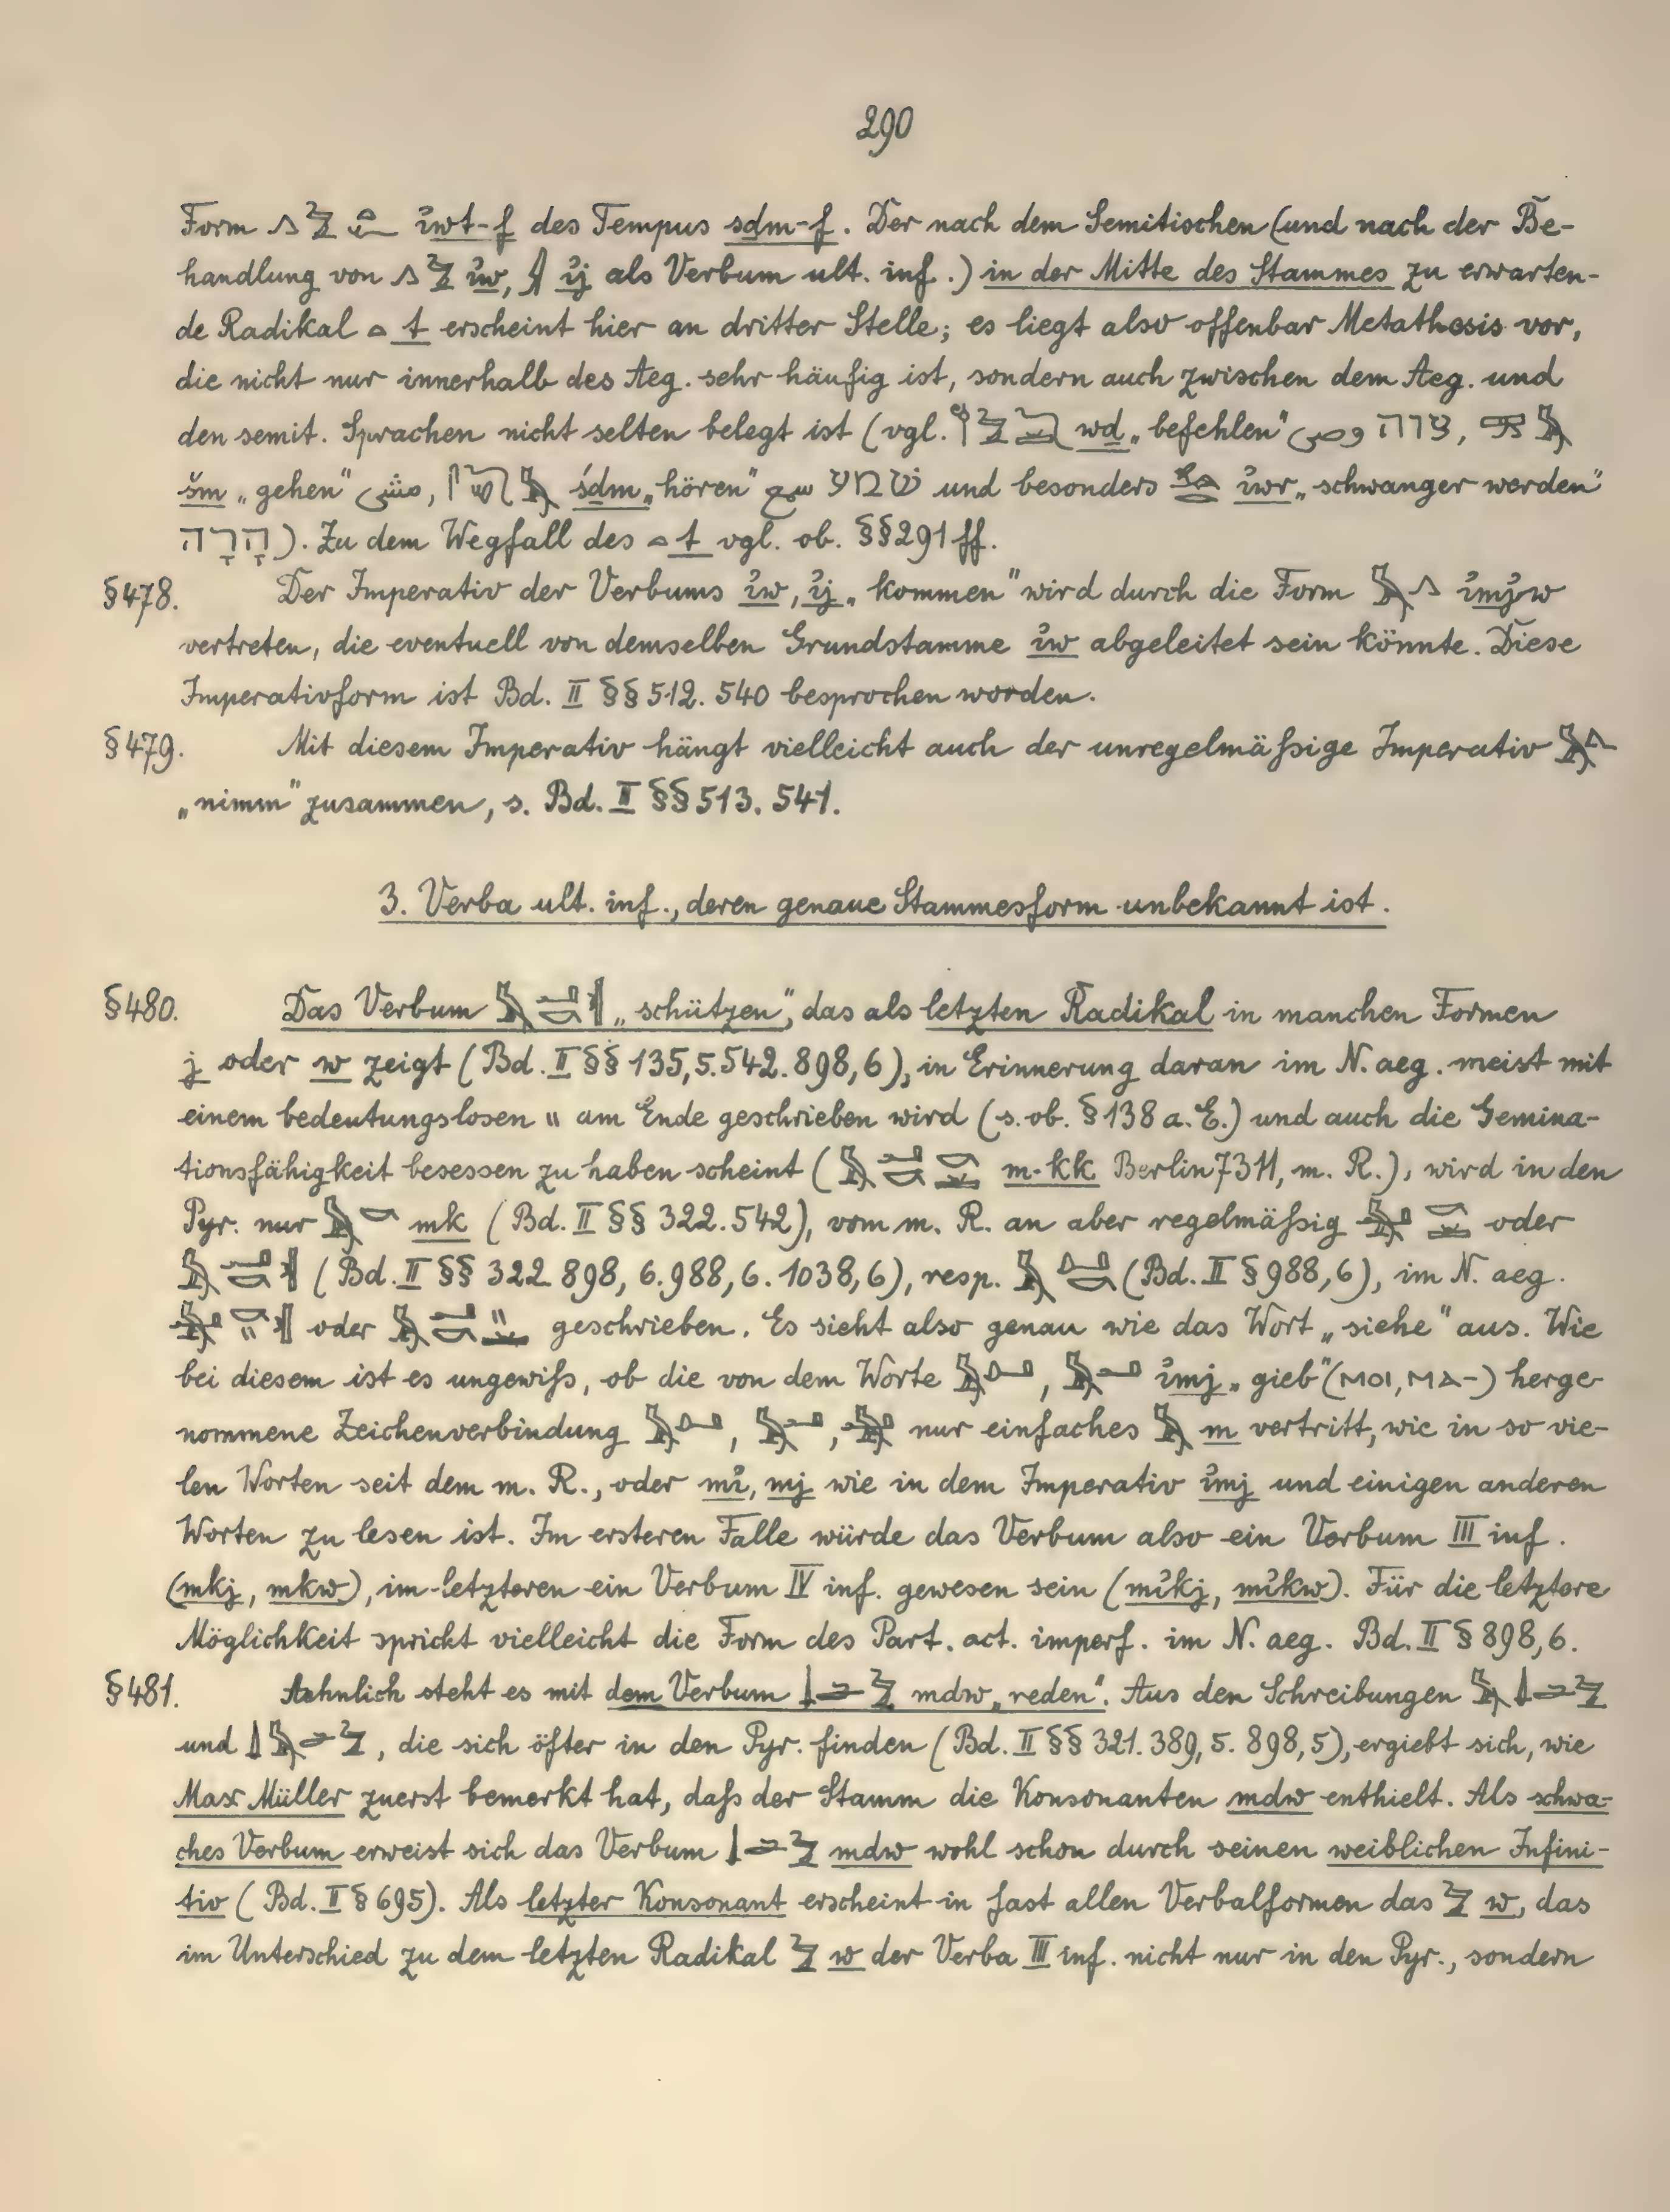 290
Form ỉwt-f des Tempus sdm-f. Der nach dem Semitischen (und nach der Be-
handlung von ỉw, ỉj als Verbum ult. inf.) in der Mitte des Stammes zu erwarten-
de Radikal t erscheint hier an dritter Stelle; es liegt also offenbar Metathesis vor,
die nicht nur innerhalb des Aeg. sehr häufig ist, sondern auch zwischen dem Aeg. und
den semit. Sprachen nicht selten belegt ist (vgl. wd „befehlen" وصى צוה,
šm „gehen" مشى, śdm „hören" سمع שמע und besonders ỉwr „schwanger werden"
הָרָה). Zu dem Wegfall des t vgl. ob. §§291 ff.
§478. Der Imperativ der Verbums ỉw, ỉj „kommen" wird durch die Form ỉmjw
vertreten, die eventuell von demselben Grundstamme ỉw abgeleitet sein könnte. Diese
Imperativform ist Bd. II §§ 512. 540 besprochen worden.
§479. Mit diesem Imperativ hängt vielleicht auch der unregelmäßige Imperativ
„nimm" zusammen, s. Bd. II §§ 513. 541.
3. Verba ult. inf., deren genaue Stammesform unbekannt ist.
§480. Das Verbum „schützen", das als letzten Radikal in manchen Formen
j oder w zeigt (Bd. II §§ 135,5. 542. 898,6), in Erinnerung daran im N. aeg. meist mit
einem bedeutungslosen " am Ende geschrieben wird (s. ob. § 138 a. E.) und auch die Gemina-
tionsfähigkeit besessen zu haben scheint ( m-kk Berlin 7311, m. R.), wird in den
Pyr. nur mk (Bd. II §§ 322. 542), vom m. R. an aber regelmäßig oder
(Bd. II §§ 322 898, 6. 988, 6. 1038, 6), resp. (Bd. II § 988, 6), im N. aeg.
oder geschrieben. Es sieht also genau wie das Wort „siehe" aus. Wie
bei diesem ist es ungewiß, ob die von dem Worte , ỉmj „gieb" (ⲙⲟⲓ, ⲙⲁ-) herge-
nommene Zeichenverbindung , , nur einfaches m vertritt, wie in so vie-
len Worten seit dem m. R., oder mỉ, mj wie in dem Imperativ ỉmj und einigen anderen
Worten zu lesen ist. Im ersteren Falle würde das Verbum also ein Verbum III inf.
(mkj, mkw), im letzteren ein Verbum IV inf. gewesen sein (mỉkj, mỉkw). Für die letztere
Möglichkeit spricht vielleicht die Form des Part. act. imperf. im N. aeg. Bd. II § 898,6.
§481. Aehnlich steht es mit dem Verbum mdw „reden". Aus den Schreibungen
und , die sich öfter in den Pyr. finden (Bd. II §§ 321. 389, 5. 898, 5), ergiebt sich, wie
Max Müller zuerst bemerkt hat, daß der Stamm die Konsonanten mdw enthielt. Als schwa-
ches Verbum erweist sich das Verbum mdw wohl schon durch seinen weiblichen Infini-
tiv (Bd. II § 695). Als letzter Konsonant erscheint in fast allen Verbalformen das w, das
im Unterschied zu dem letzten Radikal w der Verba III inf. nicht nur in den Pyr., sondern